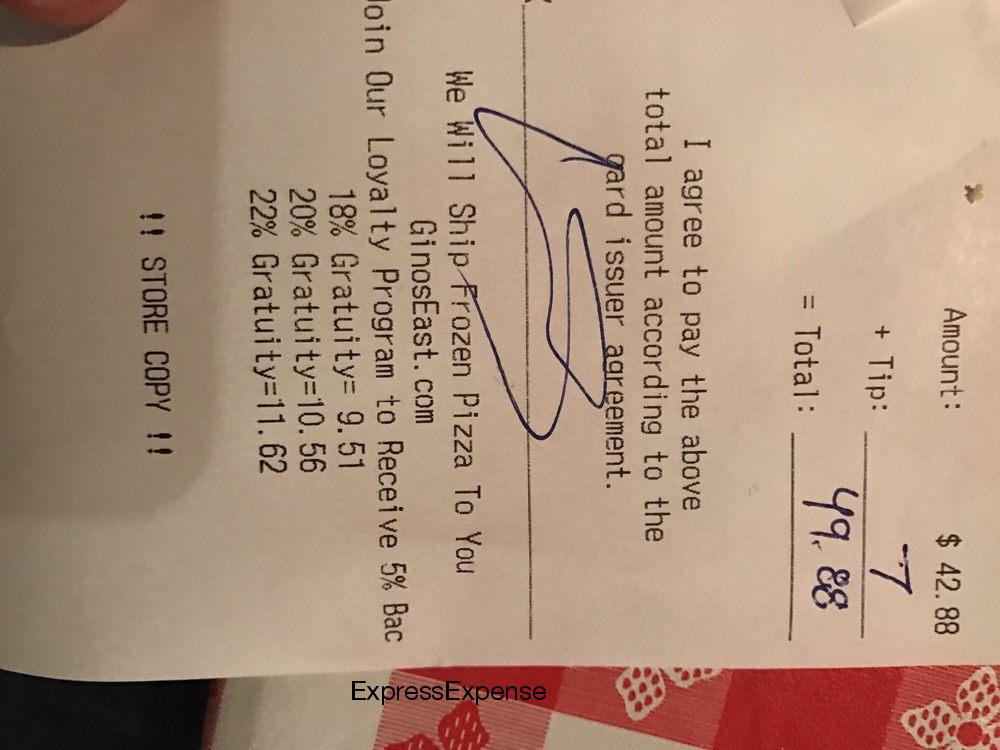 Amount: $ 42.88
+ Tip: 7
= Total: 49.88
I agree to pay the above
total amount according to the
card issuer agreement.
We Will Ship Frozen Pizza To You
GinosEast.com
Join Our Loyalty Program to Receive 5% Bac
18% Gratuity= 9.51
20% Gratuity=10.56
22% Gratuity=11.62
!! STORE COPY !!
ExpressExpense